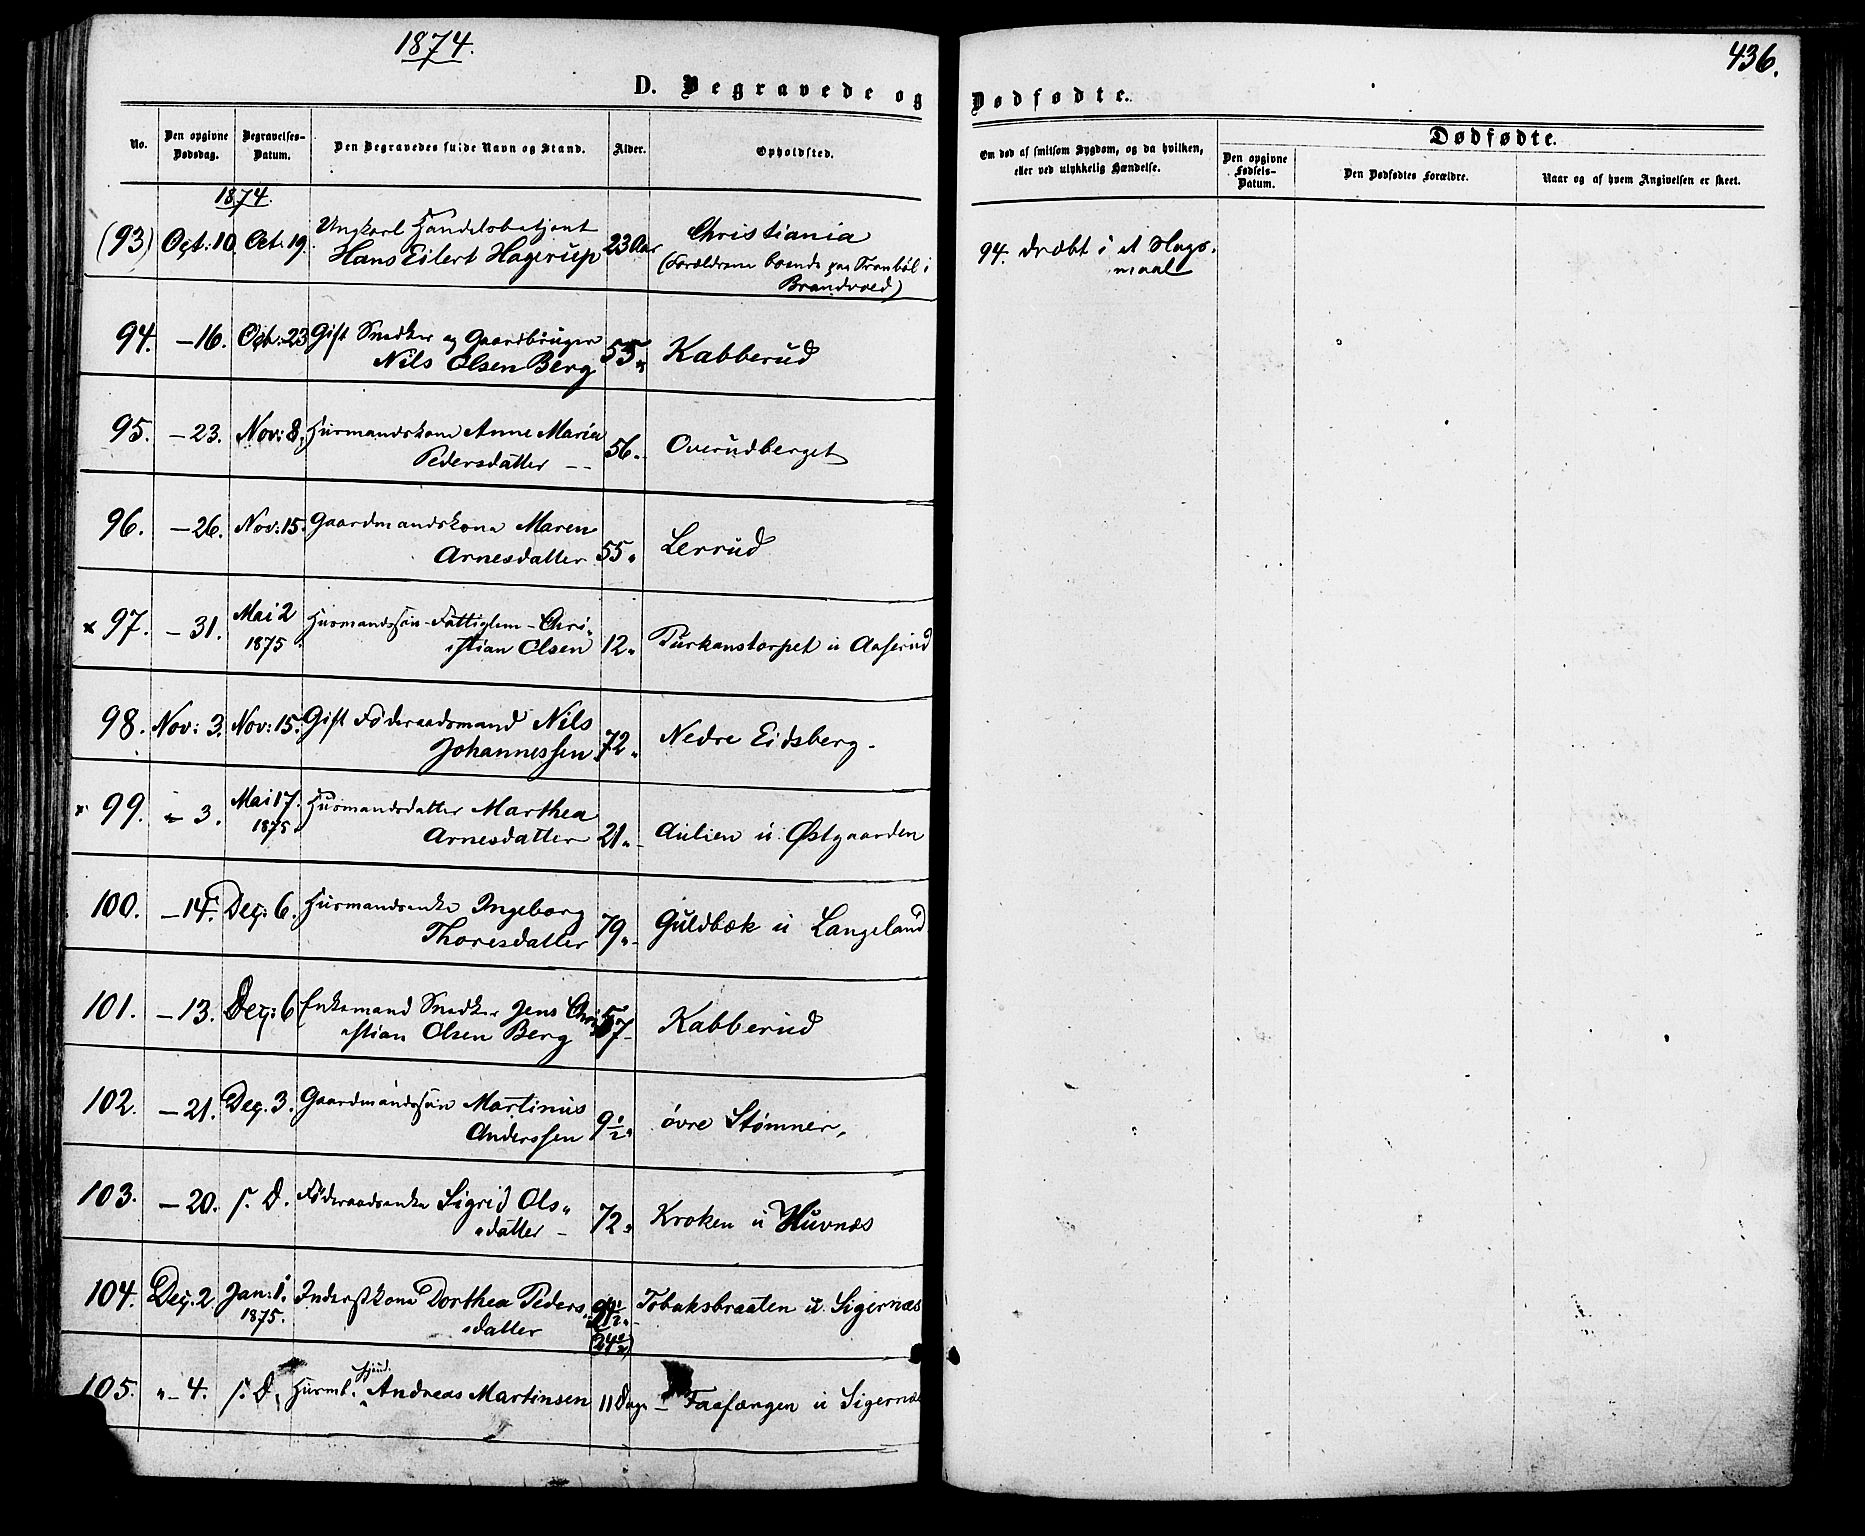 1874.
436.
D. Begravede og Dødfødte.
No.
Den opgivne Dødsdag.
Begravelses-Datum.
Den Begravedes fulde Navn og Stand.
Alder.
Opholdsted.
Om død af smitsom Sygdom, og da hvilken, eller ved ulykkelig Hændelse.
Dødfødte.
Den opgivne Fødsels-Datum.
Den Dødfødtes Forældre.
Naar og af hvem Angivelsen er skeet.
1874.
(93) Oct: 10. Oct: 19. Ungkarl Handelsbetjent
Hans Eilert Hagerup 23 Aar Christiania
(Forældrene boende paa Tranbøl i
Brandvold)
94. dræbt i et Slags-
maal
94. -16. Oct: 23 Gift Snedker og Gaardbruger
Nils Olsen Berg 55 " Kabberud
95. -23. Nov: 8. Husmandskone Anne Maria
Pedersdatter -- 56 " Overudberget
96. -26. Nov: 15. Gaardmandskone Maren
Arnesdatter 55 " Lerrud
x 97. -31. Mai 2
1875. Husmandssøn-Fattiglem-Chri-
stian Olsen 12 " Turkanstorpet u Aaserud
98. Nov: 3. Nov: 15. Gift Føderaadsmand Nils
Johannessen 72 " Nedre Eidsberg.
x 99. " 3. Mai 17.
1875. Husmandsdatter Marthea
Arnesdatter 21 " Aulien u. Østgaarden
100. -14. Dec: 6. Husmandsenke Ingeborg
Thoresdatter 79 " Guldbæk u Langeland
101. -13. Dec: 6 Enkemand Snedker Jens Chri
stian Olsen Berg 57 - Kabberud
102. -21. Dec. 3. Gaardmandssøn Martinus
Anderssen 9½ " øvre Stømner,
103. -20. s. D. Føderaadsenke Sigrid Ols-
datter - 72 " Kroken u Huvnæs
104. Dec. 2. Jan: 1.
1875. Inderstkone Dorthea Peders
datter Tobaksbraaten u. Sigernæs
105. " - 4. s. D. Husmb. Andreas Martinsen 11 Dage - Faafangen u Sigernæs